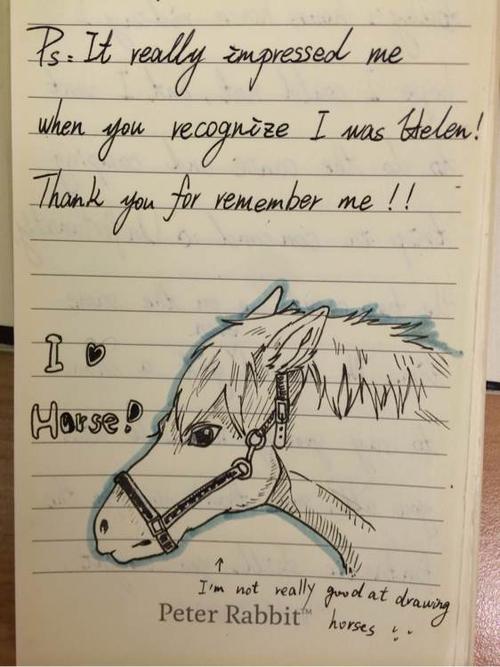 Ps: It really impressed me
when you recognize I was Helen!
Thank you for remember me !!
I ♥
Horse!
↑
I'm not really good at drawing
horses
Peter Rabbit™